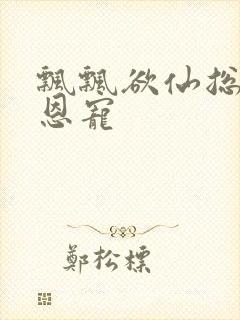 飄飄欲仙總
恩寵
鄭松標